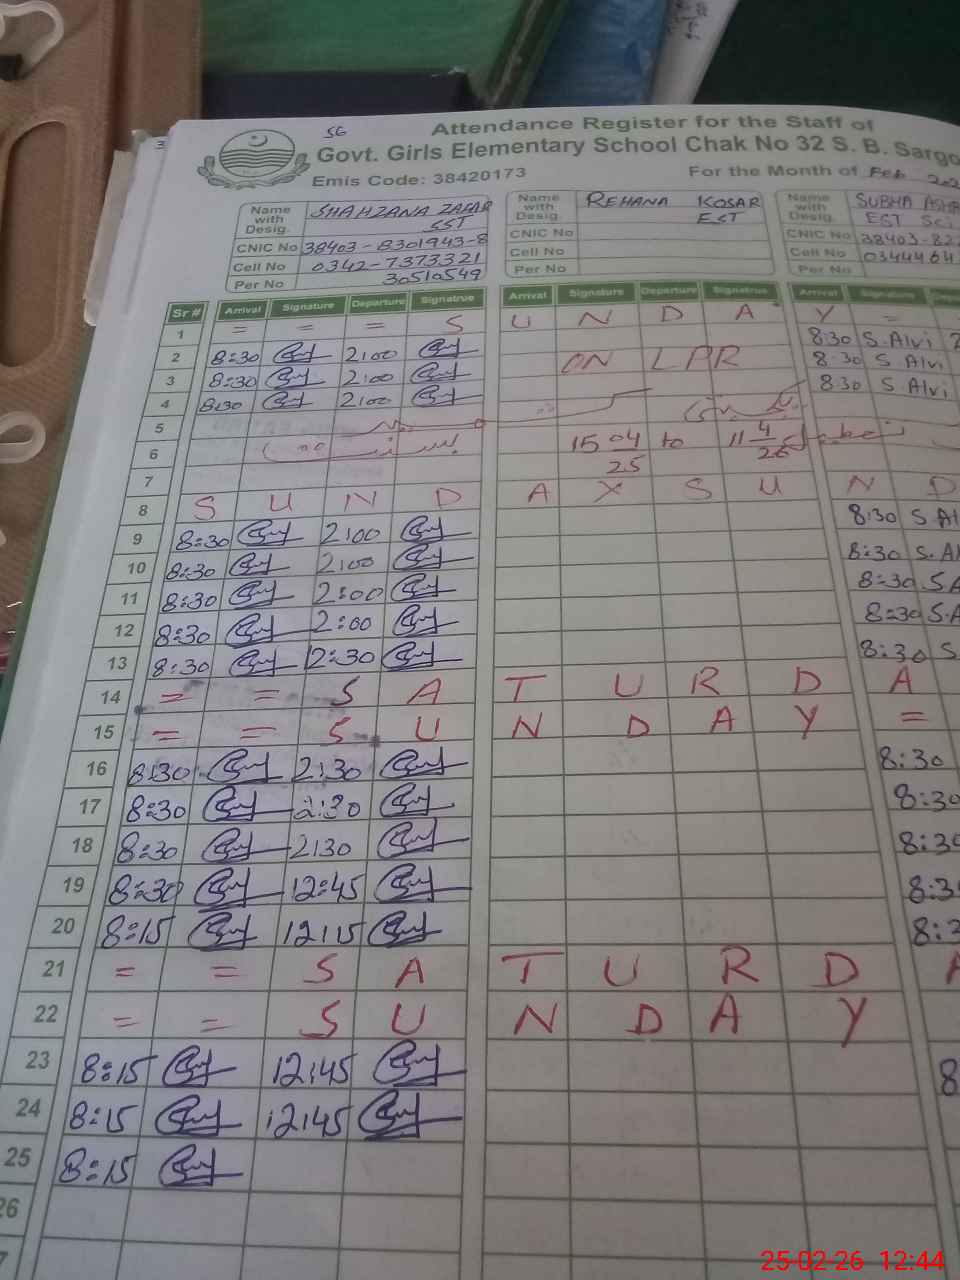 SG
Attendance Register for the Staff of
Govt. Girls Elementary School Chak No 32 S. B. Sargo
Emis Code: 38420173 For the Month of Feb 202
Name with Desig. SHAHZANA ZAFAR SST
CNIC No 38403-8301943-8
Cell No 0342-7373321
Per No 30510549
Name with Desig. REHANA KOSAR EST
CNIC No
Cell No
Per No
Name with Desig. SUBHA ASH EST Sc.
CNIC No 38403-82
Cell No 0344464
Per No
Sr # Arrival Signature Departure Signatrue Arrival Signature Departure Signatrue Arrival Signature Depa
1 = = = S U N D A Y =
2 8:30 2:00 ON LPR 8:30 S.Alvi 2
3 8:30 2:00 8:30 S.Alvi
4 8:30 2:00 8:30 S Alvi
5
6 15 04/25 to 11 4/26
7
8 S U N D A Y S U N D
9 8:30 2:00 8:30 S.Al
10 8:30 2:00 8:30 S.A
11 8:30 2:00 8:30 S.A
12 8:30 2:00 8:30 S.A
13 8:30 12:30 8:30 S
14 = = S A T U R D A
15 = = S U N D A Y =
16 8:30 2:30 8:30
17 8:30 2:30 8:30
18 8:30 2:30 8:3
19 8:30 12:45 8:3
20 8:15 12:15 8:
21 = = S A T U R D A
22 = = S U N D A Y
23 8:15 12:45 8
24 8:15 12:45
25 8:15
26
7
25-02-26 12:44